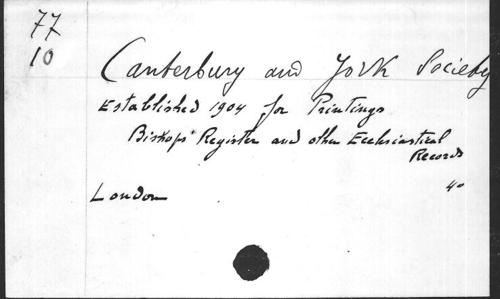 77
10
Canterbury and York Society
Established 1904 for Printings
Bishops' Register and other Ecclesiastical
Records
40
London